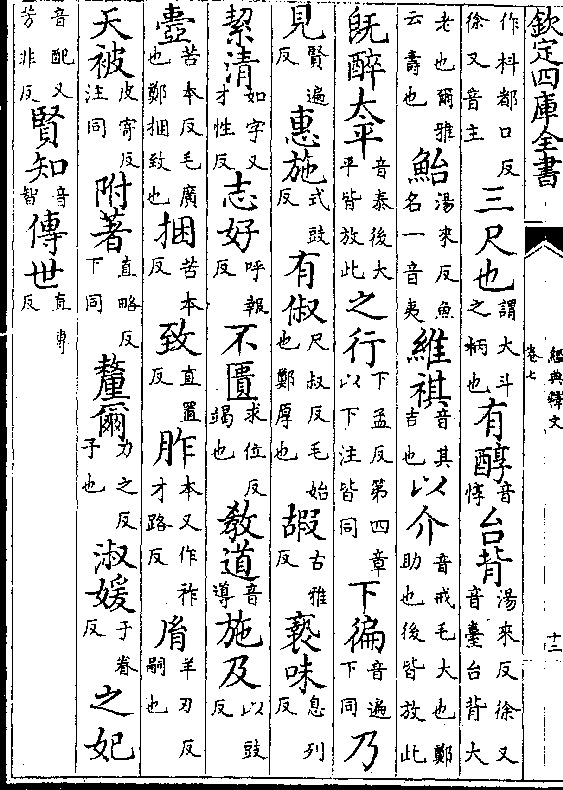 欽定四庫全書
經典釋文
卷七
十三
作枓都口反徐又音主三尺也謂大斗之柄也有醇音惇台背湯來反徐又音臺台背大
老也爾雅云壽也鮐湯來反魚名一音夷維祺音其吉也以介音戒毛大也鄭助也後皆放此
旣醉太平音泰後大平皆放此之行下孟反第四章以下注皆同下徧音遍下同乃
見賢遍反惠施式豉反有俶尺叔反毛始也鄭厚也嘏古雅反褻味息列反
絜清如字又才性反志好呼報反不匱求位反竭也敎道音導施及以豉反
壼苦本反毛廣也鄭捆致也捆苦本反致直置反胙本又作祚才路反胤羊刃反嗣也
天被皮寄反注同附著直略反下同釐爾力之反予也淑媛于眷反之妃
音配又芳非反賢知音智傳世直專反